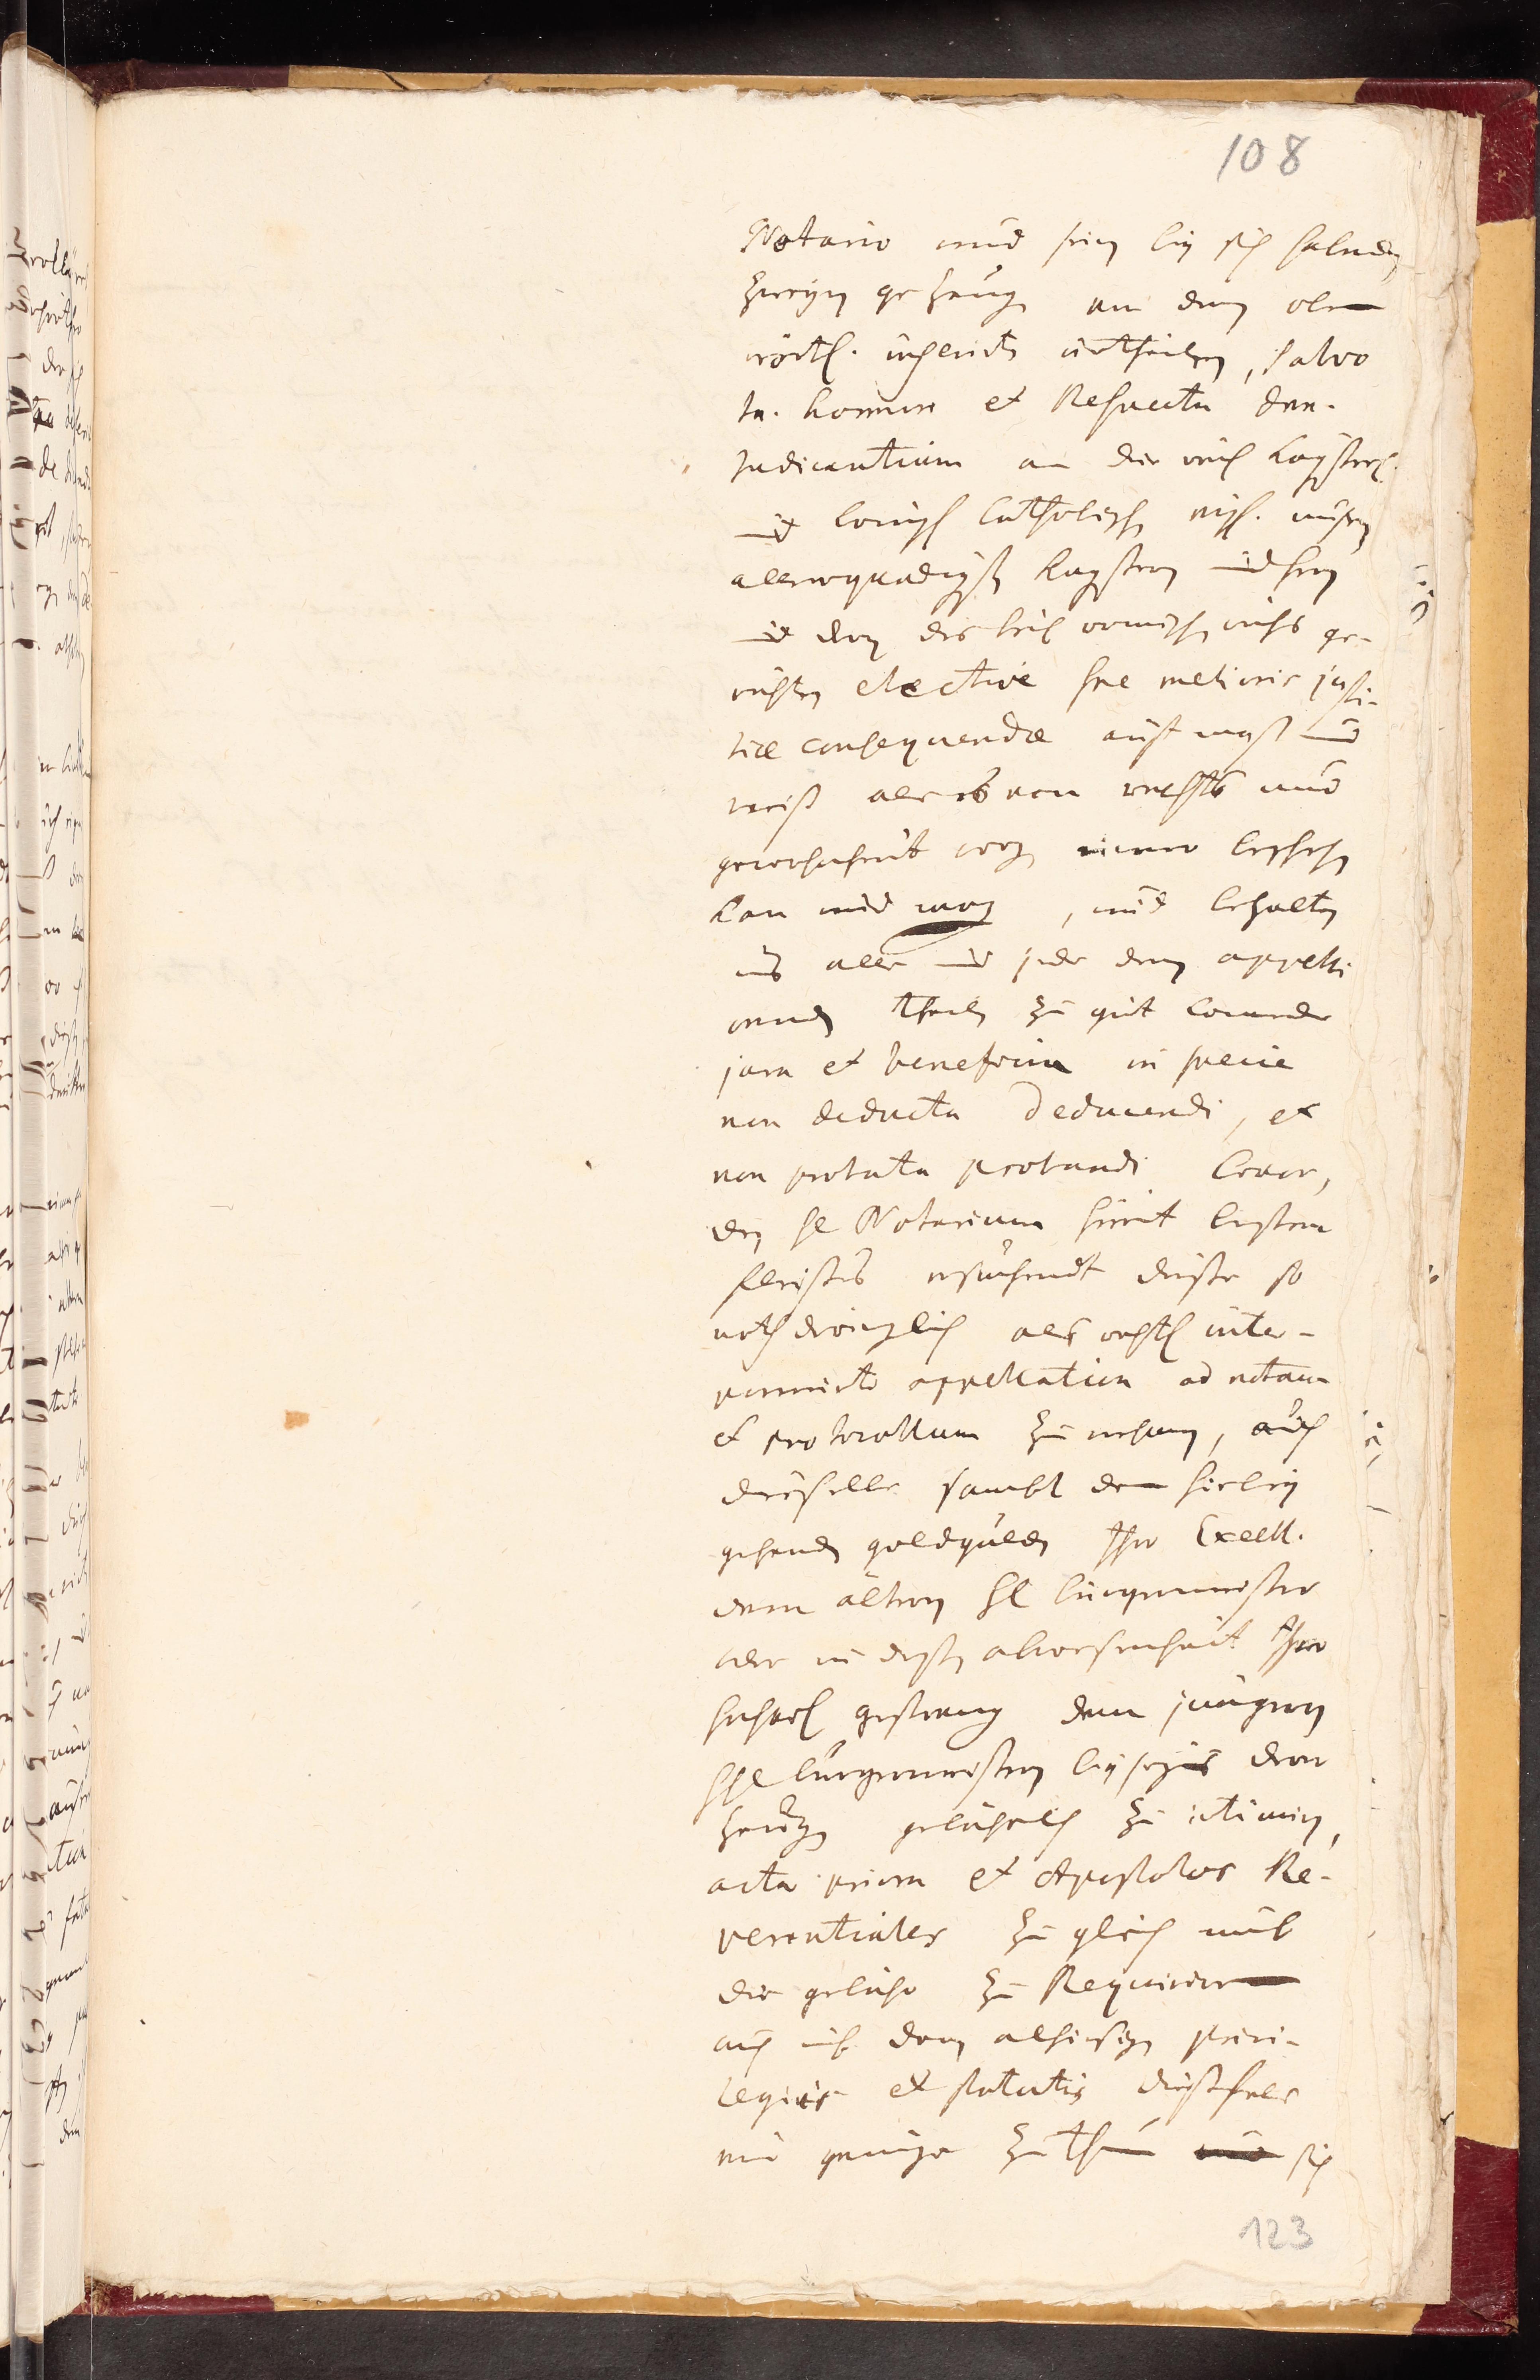 108
Notario und sein bey sich habende
zweyen gezeugen von dem oben
wörtl. inserirten urtheilen, salvo
tn. honore et Respectu dnn.
Judicantium an die röm. Kayserl.
und Königl. Catholische mst. unsern
allergnädigsten Kaysern und hern
und den des heil. römischen reichs ge-
richten elective spe melioris justi-
tiae consequendae auf maß und
weiß als es von rechts und
gewohnheit wegen immer beschehen
kan und mag, und behalten
uns alle und jede dem appelli
renden theilen zu gut kommende
jura et beneficia in specie
non deducta deducendi, et
non probata probandi bevor,
den H. Notarium hiemit bestem
fleißes ersuchendt dieße so
nothdringlich als rechtl. inter-
ponirte appellation ad notam
et protocollum zu nehmen, auch
dieselbe sambt dem hiebey
gehenden goldgulden Ihro Excell.
dem ältern H. burgermeister
oder in deßen abwesenheit Ihro
gestreng dem jüngern
H. burgermeistern beyseyns deren
zeugen gebührlich zu intimiren,
acta priora et Apostolos Re-
verentiales zu gleich umb
die gebühr zu Requiriren
auch mit den alhiesigen privi-
legiis et statutis dießfals
ein genüge zu thun und sich
123